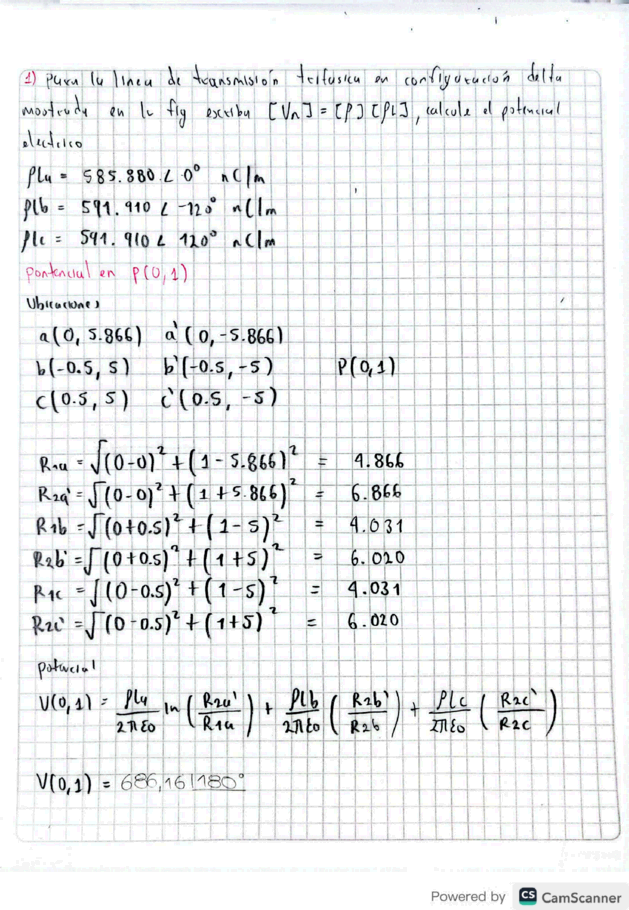 1) Para la linea de transmisión trifasica en configuración delta
mostrada en la fig escriba [Vn] = [P] [ρL], calcule el potencial
electrico
ρla = 585.880 ∠ 0° nC/m
ρlb = 591.910 ∠ -120° nC/m
ρlc = 591.910 ∠ 120° nC/m
pontencial en P(0,1)
Ubicaciones
a(0, 5.866) a'(0,-5.866)
b(-0.5, 5) b'(-0.5, -5) P(0,1)
c(0.5, 5) c'(0.5, -5)
R1a = √(0-0)² + (1 - 5.866)² = 4.866
R2a' = √(0-0)² + (1 + 5.866)² = 6.866
R1b = √(0+0.5)² + (1-5)² = 4.031
R2b' = √(0+0.5)² + (1+5)² = 6.020
R1c = √(0-0.5)² + (1-5)² = 4.031
R2c' = √(0-0.5)² + (1+5)² = 6.020
potencial
V(0,1) = ρla/2πε0 ln (R2a'/R1a) + ρlb/2πε0 (R2b'/R2b) + ρlc/2πε0 (R2c'/R2c)
V(0,1) = 686,16∠180°
Powered by CS CamScanner